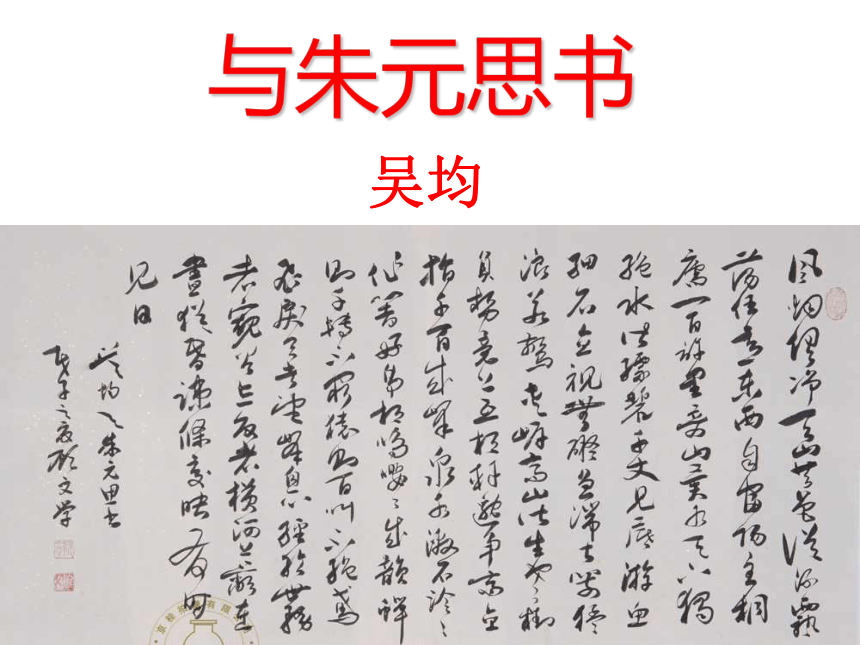 与朱元思书
吴均
风烟俱净天山共色从流飘
荡任意东西自富阳至桐
庐一百许里奇山异水天下独
绝水皆缥碧千丈见底游鱼
细石直视無礙急湍甚箭猛
浪若奔夹岸高山皆生寒树
負势竞上互相轩邈争高直
指千百成峰泉水激石泠泠
作響好鸟相鸣嘤嘤成韻蝉
则千转不窮猿则百叫不绝鸢
飞戾天者望峰息心經纶世务
者窥谷忘反横柯上蔽在
晝猶昏疏條交映有时
见日
吴均与朱元思书
戊子之夏文学